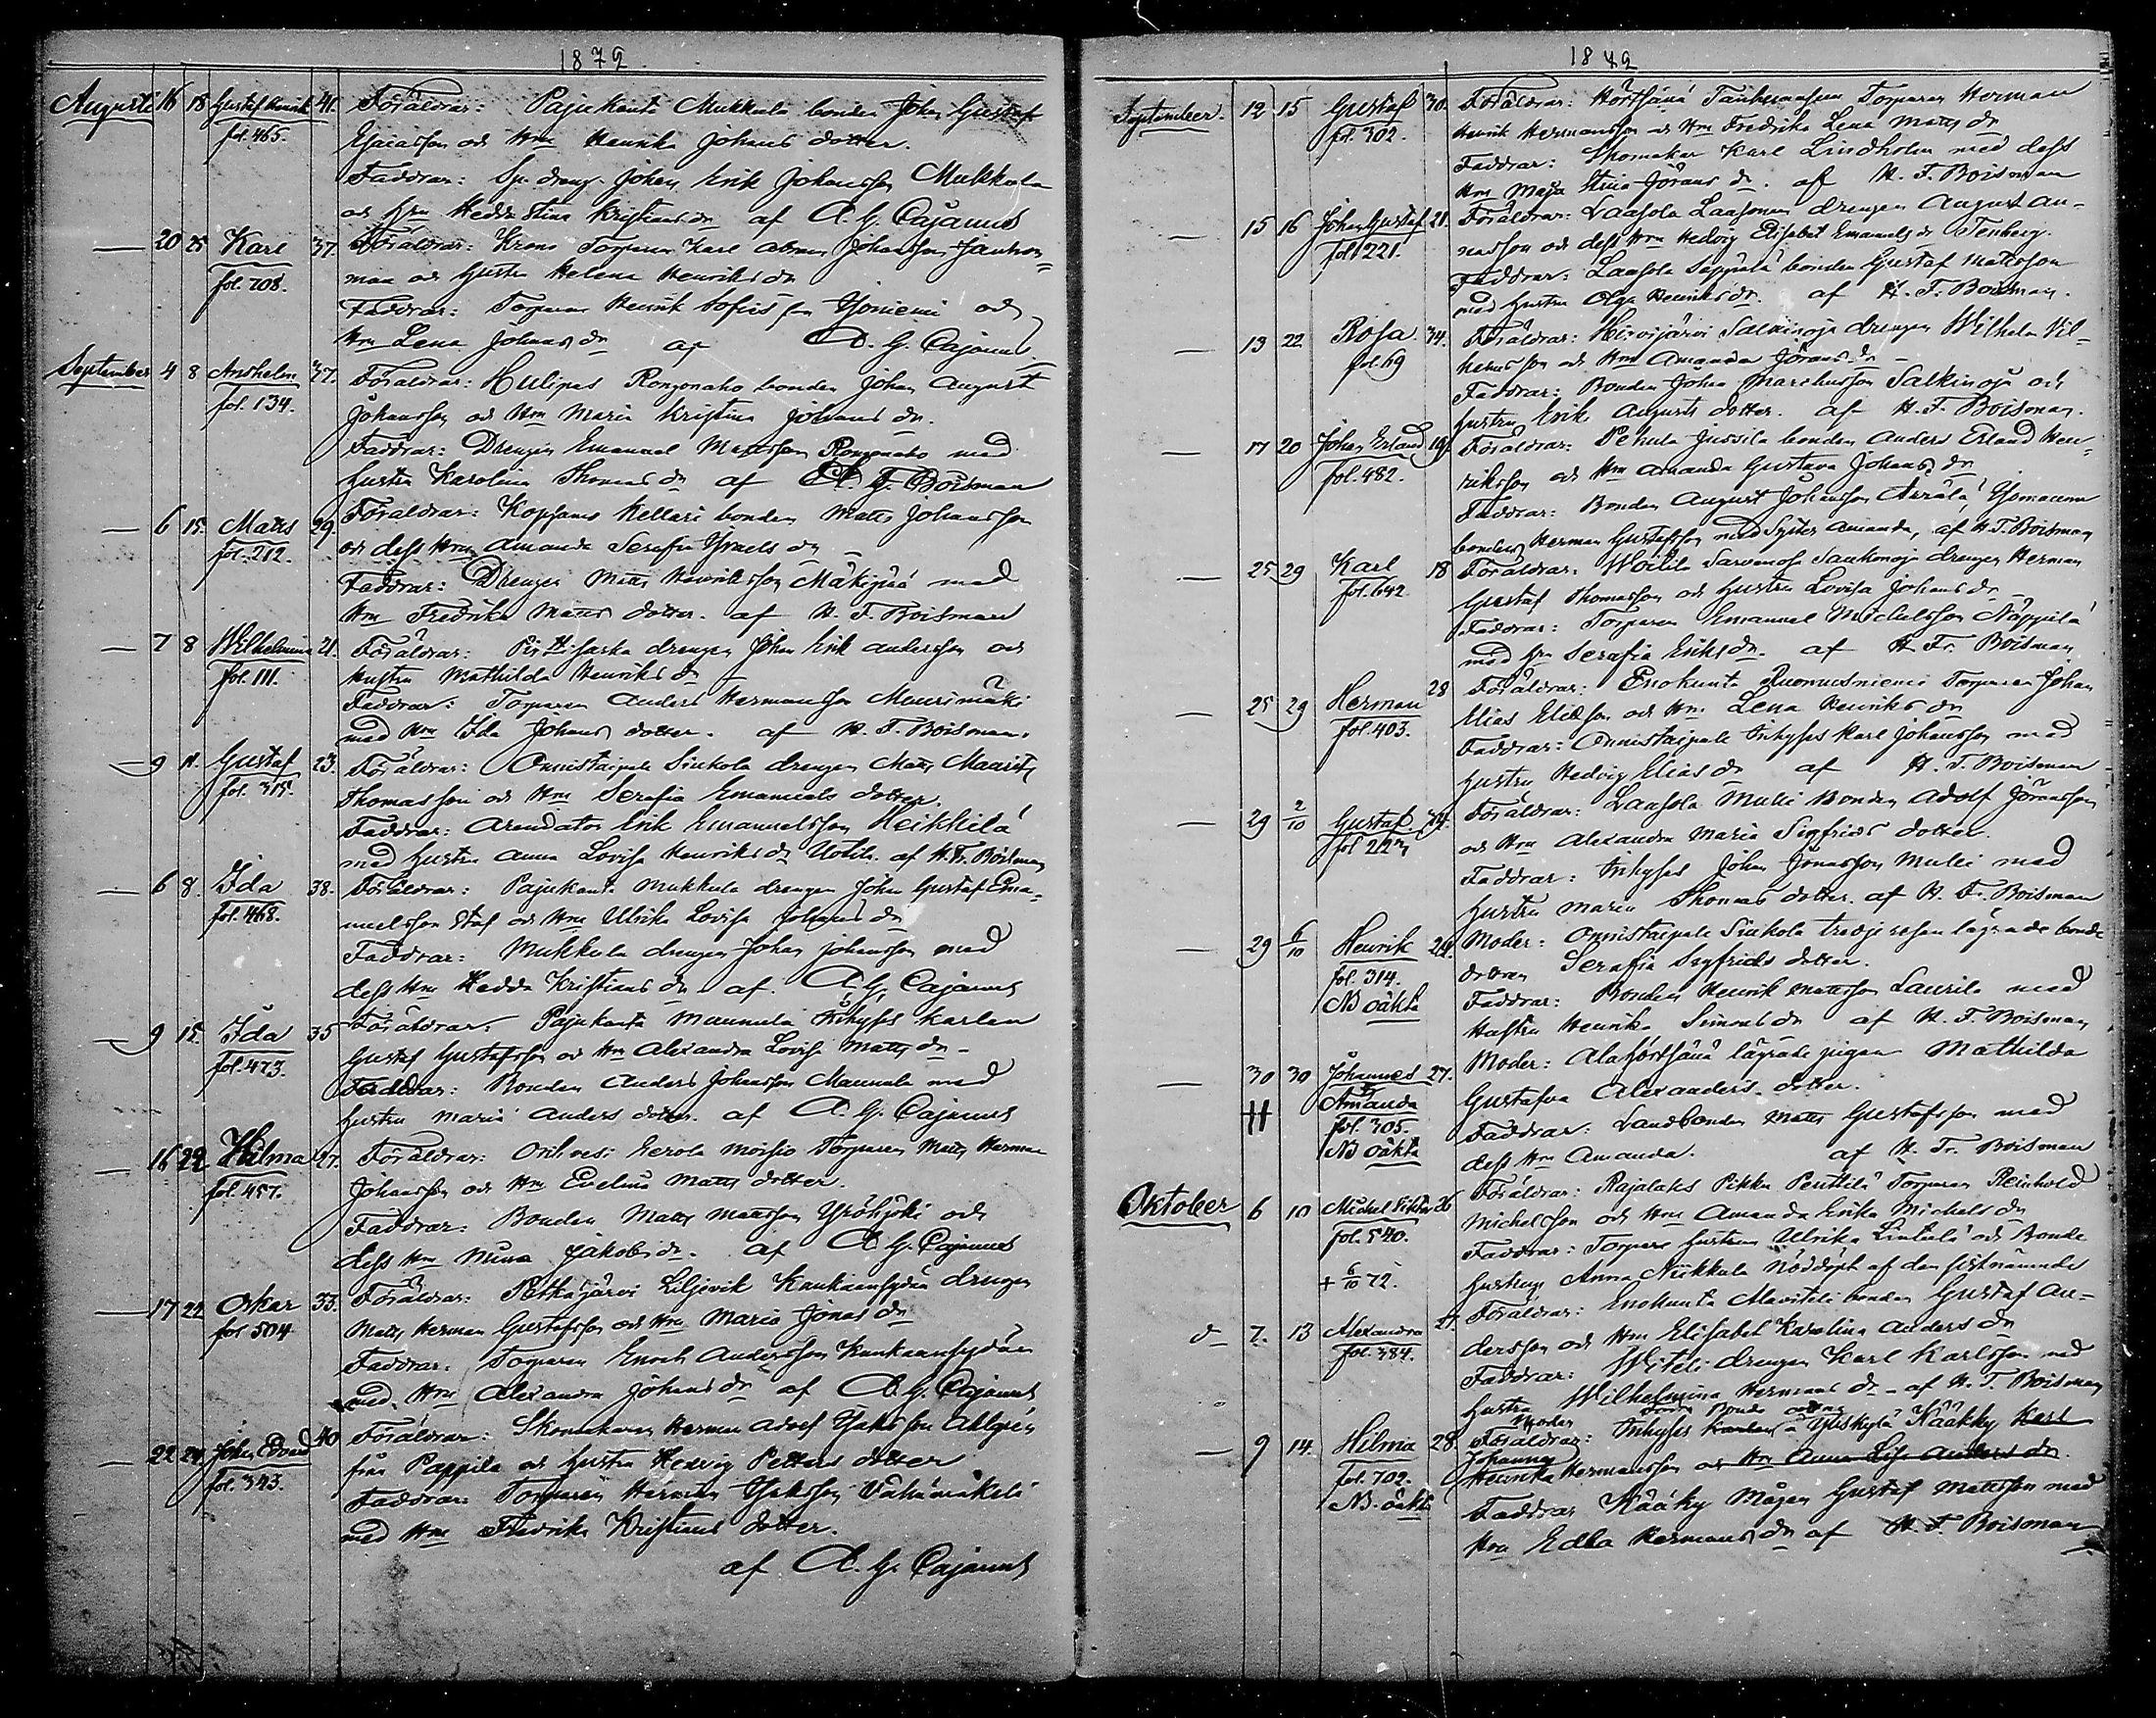 1872
Augusti 16 18 Gustaf Henrik 41. Föräldrar: Pajukanta Mukkula bonden Johan Gustaf
fol. 465. Esaiasson och Hru Henrika Johans dotter.
Faddrar: Sp. dräng Johan Erik Johansson Mukkula
och Hru Hedda Stina Kristians dr af A. G. Cajanus
— 20 25 Karl 37. Föräldrar: Krono Torparen Karl Johansson
fol. 708. man och hustru Helena Henriks dr
Faddrar: Torparen Henrik Ylöniemi och
Hru Lena Johans dr af A. G. Cajanus
September 4 8 Anshelm 27. Föräldrar: Hulipas Rongonaho bonden Johan August
fol. 134. Johansson och Hru Maria Kristina Johans dr.
Faddrar: Drengen Emanuel Mattsson Rongonaho med
hustru Karolina Thomas dr af H. F. Boisman
— 6 15. Matts 29. Föräldrar: Kopsamo Kellari bonden Matts Johansson
fol. 212. och dess Hru Amanda Serafia Israels dr
Faddrar: Drengen Matts Henriksson Mäkipää med
Hru Fredrika Matts dotter. af H. F. Boisman
— 7 8 Wilhelmina 21. Föräldrar: drengen Johan Erik Andersson och
fol. 111. hustru Mathilda Henriks dr
Faddrar: Torparen Anders Hermansson Muurimäki
med Hru Ida Johans dotter. af H. F. Boisman.
— 9 11. Gustaf 23. Föräldrar: Onnistaipale Siukola drengen Matts Maurits
fol. 315. Thomasson och Hru Serafia Emanuels dotter.
Faddrar: Arendator Erik Emanuelsson Heikkilä
med hustru Anna Lovisa Henriks dr Uotila. af H. F. Boisman
— 6 8. Ida 38. Föräldrar: Pajukanta Mukkula drengen Johan Gustaf Ema-
fol. 468. nuelsson Staf och Hru Ulrika Lovisa Johans dr
Faddrar: Mukkula drengen Johan Johansson med
dess Hru Hedda Kristians dr af. A. G. Cajanus
— 9 15. Ida 35 Föräldrar: Pajukanta Mannula Inhyses karlen
fol. 473. Gustaf Gustafsson och Hru Alexandra Lovisa Matts dr -
Faddrar: Bonden Anders Johansson Mannula med
hustru Maria Anders dotter. af A. G. Cajanus
— 16 22 Hilma 27. Föräldrar: Orihvesi Eerola Moisio Torparen Matts Herman
fol. 457. Johansson och Hru Evelina Matts dotter.
Faddrar: Bonden Matts Mattsson Yröhjoki och
dess Hru Mina Jakobs dr. af A. G. Cajanus
— 17 22 Oskar 33. Föräldrar: Petkajärvi Liljevik Kankaansydän drengen
fol 504 Matts Herman Gustafsson och Hru Maria Jonas dr
Faddrar: Torparen Enoch Andersson Kankaansydän
med. Hru Alexandra Johans dr af A. G. Cajanus
— 22 24 Johan Edvard 40 Föräldrar: Skomakaren Herman Adolf Isaksson Ahlgrén
fol. 343. från Pappila och hustru Hedvig Petters dotter
Faddrar: Torparen Herman Isaksson
med Hru Fredrika Kristians dotter.
af A. G. Cajanus
1872
September. 12 15 Gustaf 30. Föräldrar: Hörtsänä Torparen Herman
fol. 302. Henrik Hermansson och Hru Fredrika Lena Matts dr
Faddrar: Skomakar Karl Lindholm med dess
Hru Maja Stina Jörans dr. af H. F. Boisman
— 15 16 Johan Gustaf 21. Föräldrar: Laasola Laasonen drengen August An-
fol 221. och dess Hru Hedvig Elisabet Emanuels dr Tenberg.
Faddrar: Laasola Seppälä bonden Gustaf Mattsson
med hustru Olga Henriks dr. af H. F. Boisman.
— 13 22 Rosa 34. Föräldrar: Hirvijärvi Salkinoja drengen Wilhelm Vil-
fol. 69 helmsson och Hru Amanda Jörans dr -
Faddrar: Bonden Johan Salkinoja och
hustru Erika Augusts dotter. af H. F. Boisman.
— 17 20 Johan Erland 19. Föräldrar: Pehula Jussila bonden Anders Erland Hen-
fol. 482. riksson och Hru Amanda Gustava Johans dr
Faddrar: Bonden August Johansson Arrälä,
bonden Herman Gustafsson med Syster Amanda, af H. F. Boisman
— 25 29 Karl 18 Föräldrar. Woitila Sarvenoja drengen Herman
fol. 642 Gustaf Thomasson och hustru Lovisa Johans dr -
Faddrar: Torparen Emanuel Michelsson Näppilä
med Hru Serafia Eriks dr. af H. F. Boisman
— 25 29 Herman 28 Föräldrar: Enokunta Ruonusniemi Torparen Johan
fol. 403. Elias Eliasson och Hru. Lena Henriks dr
Faddrar: Onnistaipale Inhyses Karl Johansson med
hustru Hedvig Elias dr af H. F. Boisman
— 29 2/10 Gustaf. 34. Föräldrar: Laasola Mulli Bonden Adolf Jöransson
fol 227 och Hru Alexandra Maria Sigfrids dotter.
Faddrar: Inhyses Johan Jonasson Mulli med
hustru Maria Thomas dotter. af H. F. Boisman
— 29 6/10 Henrik 24. Moder: Onnistaipale Siukola tredje resan lägrade bonde
fol. 314. dottren Serafia Sigfrids dotter.
NB oäkta Faddrar: Bonden Henrik Mattsson Laurila med
Hustru Henrika Simons dr af H. F. Boisman
— 30 30 Johannes 27. Moder: Alahörtsänä lägrade pigan Mathilda
# Amanda Gustafva Alexanders. dotter.
fol. 305. Faddrar: Landbonden Matts Gustafsson med
NB oäkta dess Hru Amanda. af H. F. Boisman
Oktober 6 10 Michel Viktor 26 Föräldrar: Rajalahs Pikku Penttilä Torparen Reinhold
fol. 540. Michelsson och Hru Amanda Erika Michels dr
Faddrar: Torpare hustrun Ulrika Lintulä och Bonde
+ 6/10 72. hustrun Anna Niikkula nöddöpt af den sistnämnde
d— 7. 13 Alexandra 27. Föräldrar: Enokunta Maviteli bonden Gustaf An-
fol. 384. dersson och Hru Elisabet Karolina Anders dr
Faddrar: Witeli drengen Karl Karlsson med
hustru Wilhelmina Hermans dr - af H. F. Boisman
— 9 14. Hilma 28. Moder Föräldrar: Inhyses Bonde Yliskylä Kääkky Karl
fol. 702. Johanna Henrika Hermansson och Hru Anna Lisa Anders dr.
NB. oäkta Faddrar Kääky Mågen Gustaf Mattsson med
Hru Edla Hermans dr af H. F. Boisman